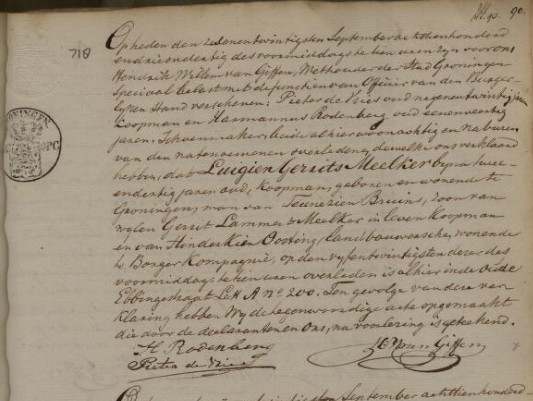 No. 90.
718
Op heden den zesentwintigsten September achttienhonderd
en drieendertig des voormiddags te tien uren zyn voor ons
Hendrik Willem van Giffen, Wethouder der Stad Groningen
Speciaal belast met de functien van Officier van den Burger-
lyken Stand verschenen: Pieter de Vries oud negenentwintig jaren
Koopman en Harmannus Rodenberg oud eenenveertig
jaren, Schoenmaker, beide alhier woonachtig en naburen
van den natenoemenen overledenen, dewelke ons verklaard
hebben, dat Luigien Gerrits Meelker byna twee-
endertig jaren oud, Koopman, geboren en wonende te
Groningen, man van Teunezien Bruins, zoon van
wylen Gerrit Lammerts Meelker in leven Koopman
en van Hinderkien Oosting, landbouwersche, wonende
te Borger Kompagnie, op den vyfentwintigsten dezer des
voormiddags te tien uren overleden is alhier in de Oude
Ebbingestraat Lett A No. 200. Ten gevolge van deze ver-
klaring hebben Wy deze tegenwoordige acte opgemaakt
die door de declaranten en Ons, na voorlezing is geteekend.
H Rodenberg
Pieter de Vries
HW van Giffen
September achttienhonderd